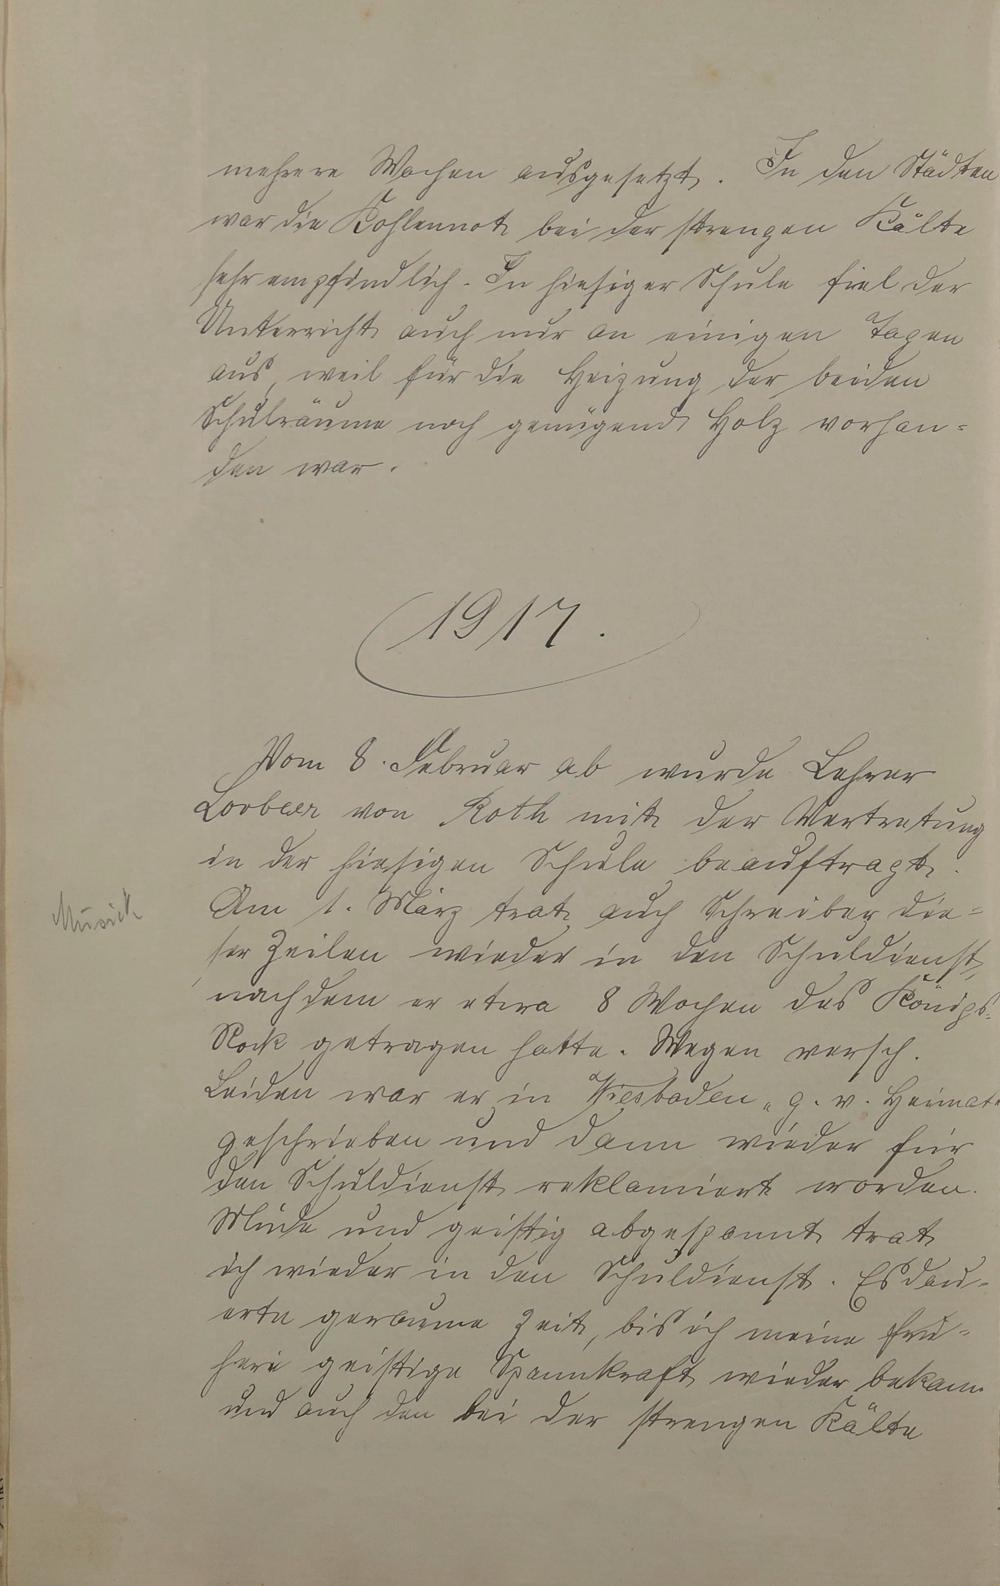 mehrere Wochen ausgesetzt. In den Städten
war die Kohlennot bei der strengen Kälte
sehr empfindlich. In hiesiger Schule fiel der
Unterricht auch nur an einigen Tagen
aus, weil für die Heizung der beiden
Schulräume noch genügend Holz vorhan=
den war.
1917.
Vom 8. Februar ab wurde Lehrer
Lorbeer von Roth mit der Vertretung
in der hiesigen Schule beauftragt.
Am 1. März trat auch Schreiber die=
ser Zeilen wieder in den Schuldienst,
nachdem er etwa 8 Wochen des Königs=
Rock getragen hatte. Wegen versch.
Leiden war er in Wiesbaden „g. v. Heimat"
geschrieben und dann wieder für
den Schuldienst reklamiert worden.
Müde und geistig abgespannt trat
ich wieder in den Schuldienst. Es dau=
erte geraume Zeit, bis ich meine frü=
here geistige Spannkraft wieder bekam
und auch den bei der strengen Kälte